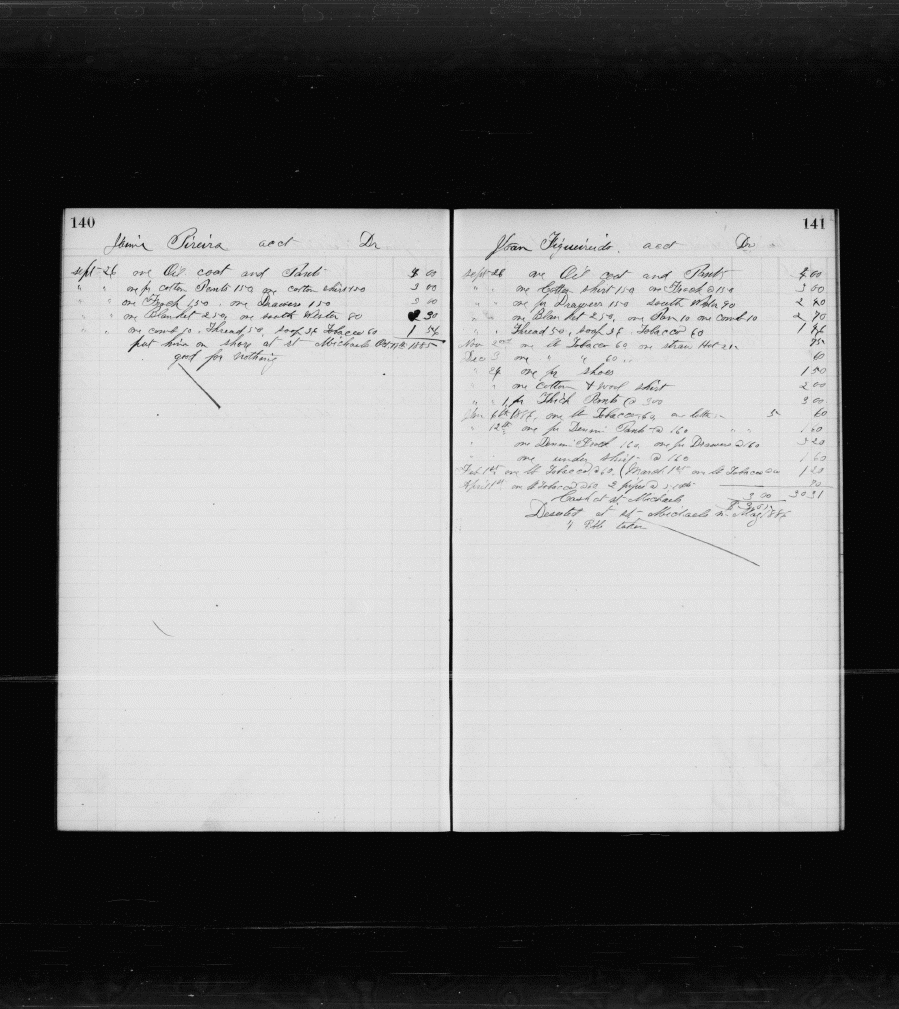 140
Pireira acct Dr
Sept 26 one Oil coat and Pants 4 00
" " one pr cotton Pants 150 one cotton shirt 150 3 00
" " one Frock 150 . one Drawers 150 3 00
" " one Blanket 250, one south Wester 80 30
" " one comb 10 . Thread 50, soap 36 Tobacco 60 1 56
put him on shore at st Michaels Oct 1885
good for nothing
141
Figueireido acct Dr
Sept 26 one Oil coat and Pants 4 00
" " one Cotton shirt 150 one Frock @ 150 3 00
" " one pr Drawers 150 south Wester 90 2 40
" " one Blanket 250, one Pan 10 one comb 10 2 70
" " Thread 50, soap 36 . Tobacco 60 1 46
Nov one lb Tobacco 60 one straw Hat 75
Dec 3 one " " 60 60
" 24 one pr shoes 1 50
" " one cotton & wool shirt 2 00
" " 1 pr Thick Pants @ 300 3 00
Jan 6th one lb Tobacco 60, 60
" 12th one pr Denim Pants @ 160
" one Denim Frock 160 one pr Drawers @ 160 3 20
" one under shirt @ 160 1 60
Feb 1st one lb Tobacco @ 60 (March 1st one lb Tobacco 1 20
April 1st one lb Tobacco @ 60 2 pipes @ 70
Cash at st Michaels 3 00 30 31
Deserted at st Michaels May 1886
" taken